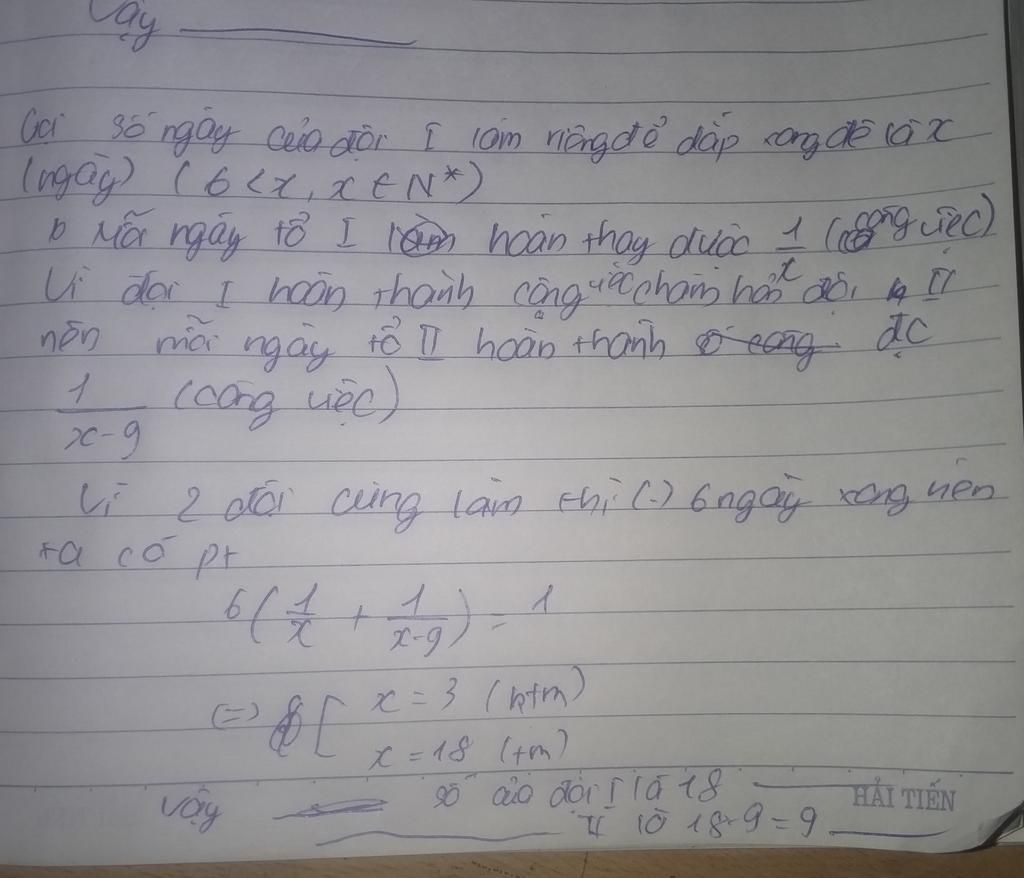 Vậy
Gọi số ngày của đội I làm riêng để đắp xong đê là x
(ngày) (6 < x, x ∈ N*)
Mỗi ngày tổ I làm hoàn thay được 1/x (công việc)
Vì đội I hoàn thành công việc chậm hơn đội II
nên mỗi ngày tổ II hoàn thành đc
1/(x-9) (công việc)
Vì 2 đội cùng làm thì (-) 6 ngày xong nên
ta có pt
6(1/x + 1/(x-9)) = 1
(=) [ x = 3 (ktm)
x = 18 (tm)
Vậy số của đội I là 18
II là 18-9=9
HẢI TIẾN